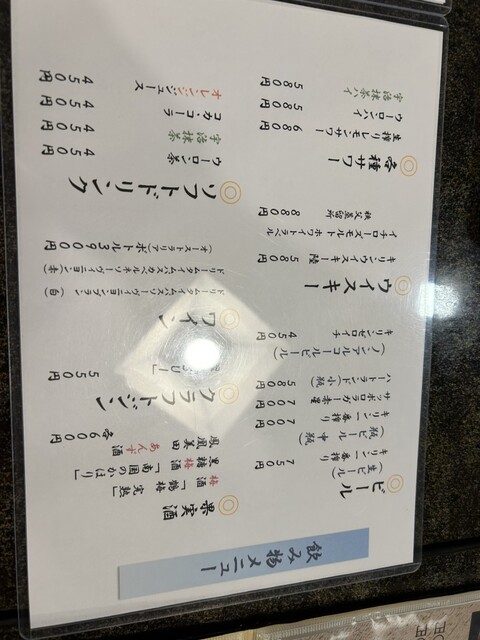 飲み物メニュー
◎ビール
(生ビール)
キリン一番搾り 750円
(瓶ビール 中瓶)
キリン一番搾り 700円
サッポロラガー赤星 700円
ハートランド(小瓶) 500円
(ノンアルコールビール)
キリンゼロイチ 450円
◎ウイスキー
キリンウイスキー陸 580円
イチローズモルトホワイトラベル
秩父蒸留所 880円
◎各種サワー
生搾りレモンサワー 680円
ウーロンハイ 580円
宇治抹茶ハイ 580円
◎果実酒
梅酒「鶴梅 完熟」
黒糖梅酒「南国のかほり」
鳳凰美田 あんず酒
各600円
◎クラフトジン
550円
◎ワイン
ドリームタイムパスソーヴィニヨンブラン (白)
ドリームタイムパスカベルネソーヴィニヨン (赤)
(オーストラリア) ボトル3900円
◎ソフトドリンク
ウーロン茶 450円
宇治抹茶 450円
コカ・コーラ 450円
オレンジジュース 450円